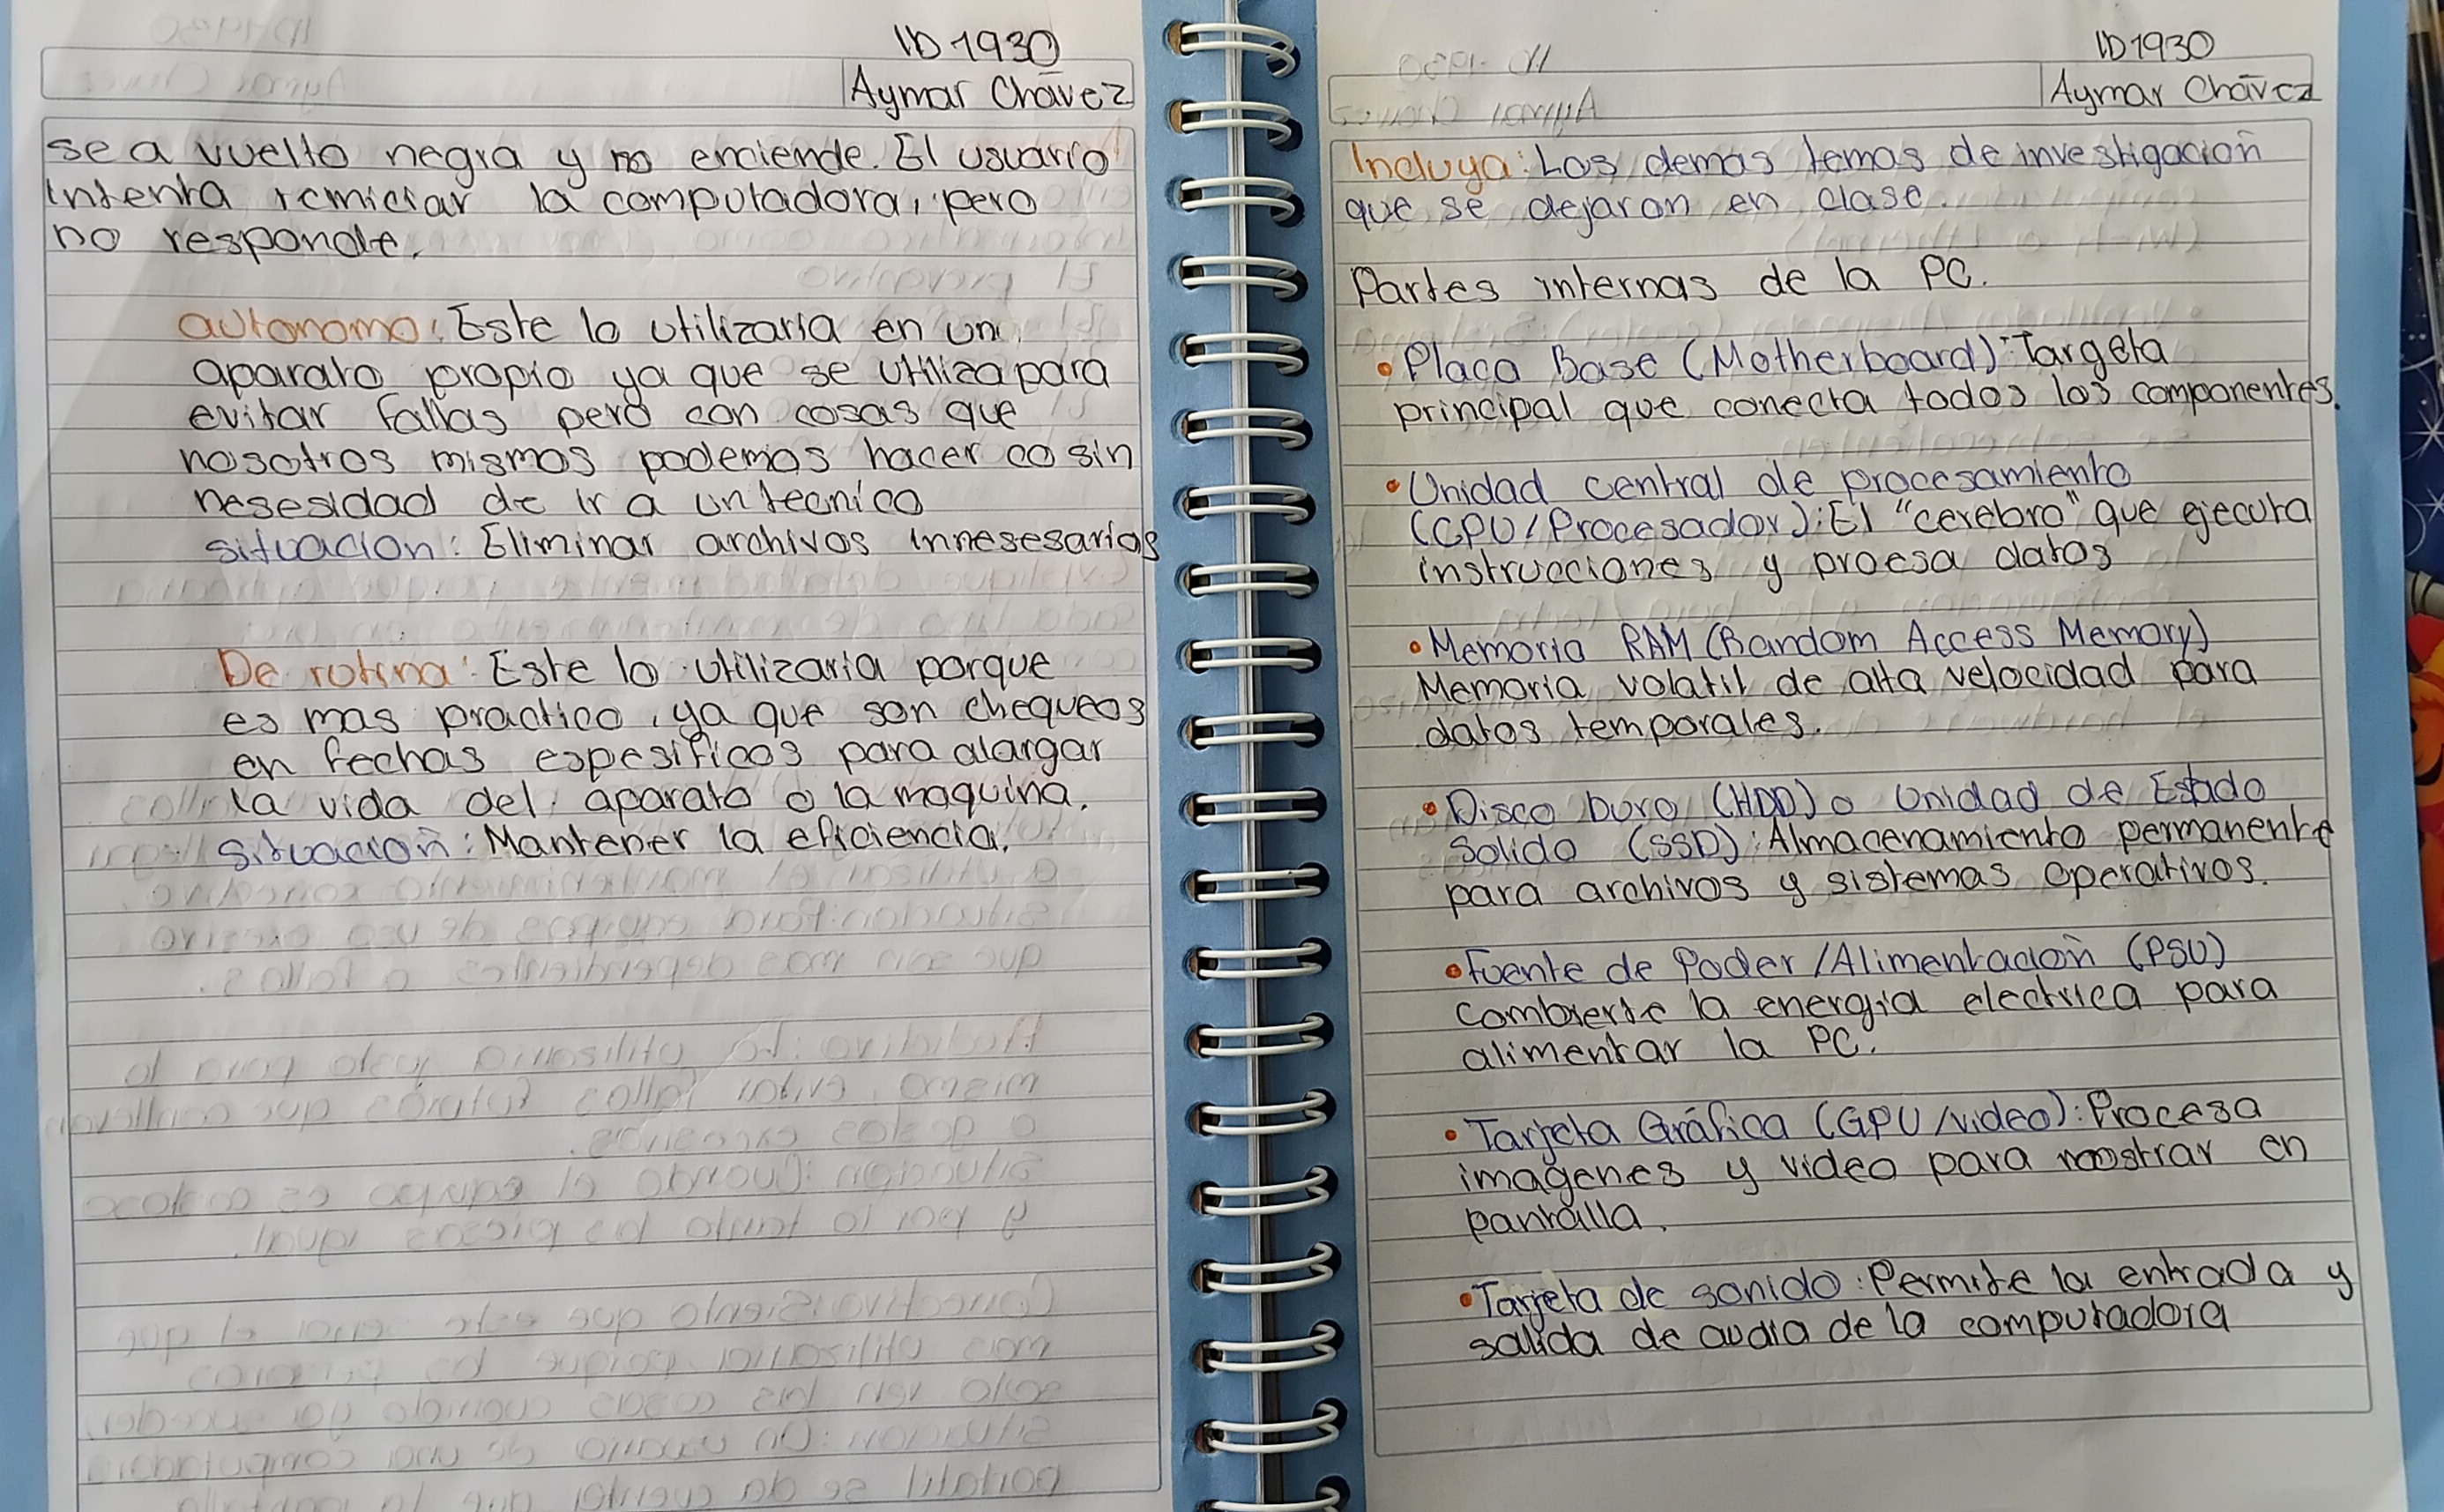 ID 1930
Aymar Chávez
se a vuelto negra y no enciende. El usuario
intenta reiniciar la computadora, pero
no responde.
autonomo: Este lo utilizaria en un
aparato propio ya que se utiliza para
evitar fallas pero con cosas que
nosotros mismos podemos hacer co sin
nesesidad de ir a un tecnico
situacion: Eliminar archivos innesesarios
De rutina: Este lo utilizaria porque
es mas practico, ya que son chequeos
en fechas espesificos para alargar
la vida del aparato o la maquina.
situación: Mantener la eficiencia.
ID 1930
Aymar Chávez
Incluya: Los demas temas de investigación
que se dejaron en clase.
Partes internas de la PC.
• Placa Base (Motherboard): Targeta
principal que conecta todos los componentes.
• Unidad central de procesamiento
(CPU/Procesador): El "cerebro" que ejecuta
instrucciones y proesa datos
• Memoria RAM (Random Access Memory)
Memoria volatil de alta velocidad para
datos temporales.
• Disco Duro (HDD) o Unidad de Estado
Solido (SSD): Almacenamiento permanente
para archivos y sistemas operativos.
• Fuente de Poder/Alimentación (PSU)
Combierte la energia electrica para
alimentar la PC.
• Tarjeta Gráfica (GPU/video): Procesa
imagenes y video para mostrar en
pantalla.
• Tarjeta de sonido: Permite la entrada y
salida de audio de la computadora